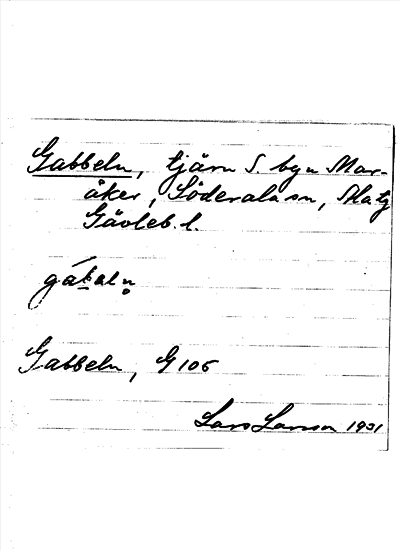 Gabbeln, tjärn S. byn Mar-
åker, Söderala sn,
Gävleb. l.
Gabbeln, G 105
Lars Larsson 1931